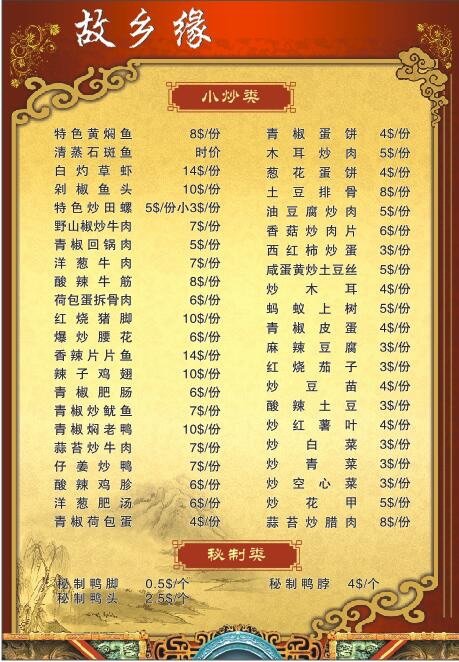 故乡缘
小炒类
特色黄焖鱼 8$/份
清蒸石斑鱼 时价
白灼草虾 14$/份
剁椒鱼头 10$/份
特色炒田螺 5$/份小3$/份
野山椒炒牛肉 7$/份
青椒回锅肉 5$/份
洋葱牛肉 7$/份
酸辣牛筋 8$/份
荷包蛋拆骨肉 6$/份
红烧猪脚 10$/份
爆炒腰花 6$/份
香辣片片鱼 14$/份
辣子鸡翅 10$/份
青椒肥肠 6$/份
青椒炒鱿鱼 7$/份
青椒焖老鸭 10$/份
蒜苔炒牛肉 7$/份
仔姜炒鸭 7$/份
酸辣鸡胗 6$/份
洋葱肥汤 6$/份
青椒荷包蛋 4$/份
青椒蛋饼 4$/份
木耳炒肉 5$/份
葱花蛋饼 4$/份
土豆排骨 8$/份
油豆腐炒肉 5$/份
香菇炒肉片 6$/份
西红柿炒蛋 3$/份
咸蛋黄炒土豆丝 5$/份
炒木耳 4$/份
蚂蚁上树 5$/份
青椒皮蛋 4$/份
麻辣豆腐 3$/份
红烧茄子 3$/份
炒豆苗 4$/份
酸辣土豆 3$/份
炒红薯叶 4$/份
炒白菜 3$/份
炒青菜 3$/份
炒空心菜 3$/份
炒花甲 5$/份
蒜苔炒腊肉 8$/份
秘制类
秘制鸭脚 0.5$/个
秘制鸭头 2.5$/个
秘制鸭脖 4$/个